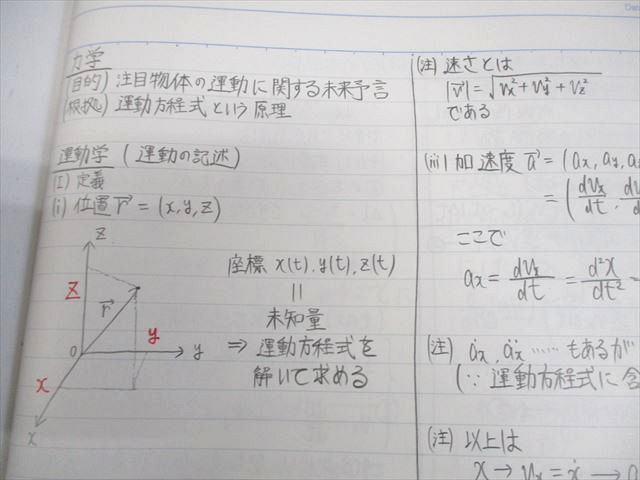 力学
(目的) 注目物体の運動に関する未来予言
(根拠) 運動方程式という原理
運動学 (運動の記述)
(I) 定義
(i) 位置 r⃗ = (x, y, z)
z
z
r⃗
y
0
y
x
x
座標 x(t), y(t), z(t)
||
未知量
⇒ 運動方程式を
解いて求める
(注) 速さとは
|v⃗| = √(vx² + vy² + vz²)
である
(iii) 加速度 a⃗ = (ax, ay, a
= (dvx/dt, dv
ここで
ax = dvx/dt = d²x/dt² =
(注) ȧx, äx …… もあるが
(∵ 運動方程式に含
(注) 以上は
x → vx = ẋ →